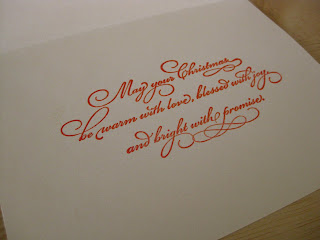 May your Christmas
be warm with love, blessed with joy,
and bright with promise.